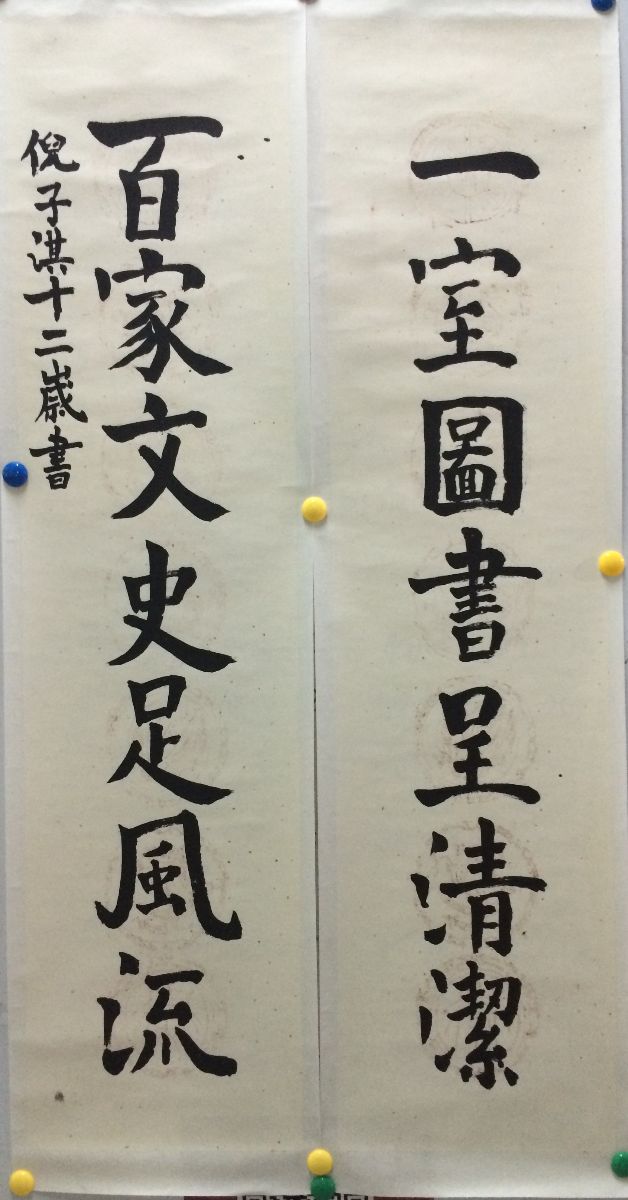 一室圖書呈清潔
百家文史足風流
倪子淇十二歲書